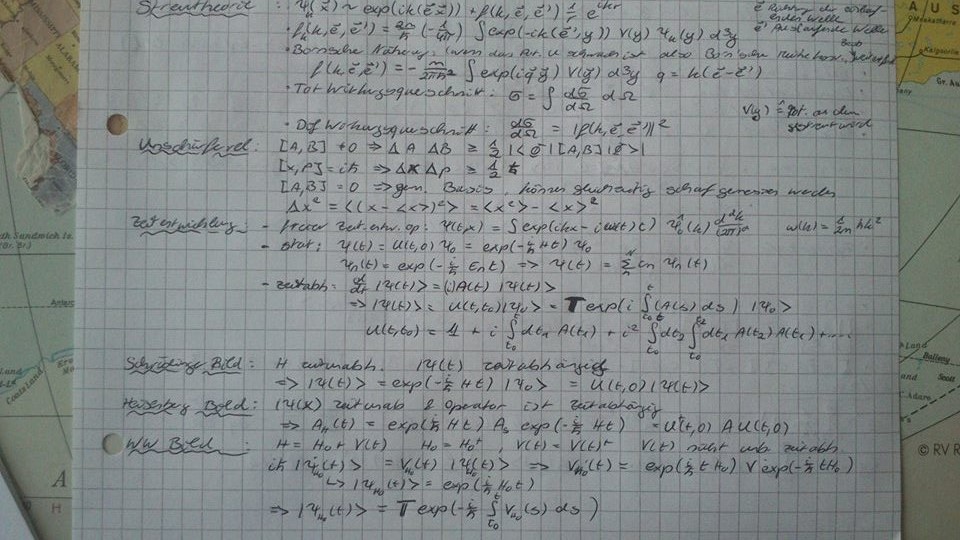 Streutheorie: ψ_k(x⃗) ~ exp(ik(e⃗x⃗)) + f(k,e⃗,e⃗') 1/r e^{ikr}
e⃗ Richtung der einlaufenden Welle
e⃗' Auslaufende Welle
• f_k(k,e⃗,e⃗') = 2m/ħ (-1/4π) ∫exp(-ik(e⃗',y)) V(y) ψ_k(y) d³y
• Bornsche Näherung: (wenn das Pot. schwach ist also
f(k,e⃗,e⃗') = - m/2πħ² ∫ exp(iq⃗y⃗) V(y⃗) d³y q = k(e⃗-e⃗')
• Tot Wirkungsquerschnitt: σ = ∫ dσ/dΩ dΩ
V(y) ≙ Pot. an dem gestreut wird
• Diff Wirkungsquerschnitt: dσ/dΩ = |f(k,e⃗,e⃗')|²
Unschärferel: [A,B] ≠0 ⇒ ΔA ΔB ≥ 1/2 |<φ|[A,B]|φ>|
[x,p] = iħ ⇒ Δx Δp ≥ 1/2 ħ
[A,B] = 0 ⇒ gem. Basis, können gleichzeitig scharf gemessen werden
Δx² = <(x - <x>)²> = <x²> - <x>²
Zeitentwicklung: - freier Zeitentw. op: ψ(t,x) = ∫exp(ikx - iω(k)t) ψ̂_0(k) d^dk/(2π)^d ω(k) = 1/2m ħk²
- stat: ψ(t) = U(t,0) ψ_0 = exp(-i/ħ Ht) ψ_0
ψ_n(t) = exp(-i/ħ E_n t) ⇒ ψ(t) = Σ^N c_n ψ_n(t)
- zeitabh: d/dt |ψ(t)> = (i)A(t) |ψ(t)>
⇒ |ψ(t)> = U(t,t_0)|ψ_0> = T exp(i ∫_{t_0}^t (A(s) ds) |ψ_0>
U(t,t_0) = 𝟙 + i ∫_{t_0}^t dt_1 A(t_1) + i² ∫_{t_0}^t dt_2 ∫_{t_0}^{t_2} dt_1 A(t_2) A(t_1) + ....
Schrödinger Bild: H zeitunabh. |ψ(t) zeitabhängig
⇒ |ψ(t)> = exp(-i/ħ Ht) |ψ_0> = U(t,0)|ψ(t)>
Heisenberg Bild: |ψ(x) zeitunab & Operator ist zeitabhängig
⇒ A_H(t) = exp(i/ħ Ht) A_s exp(-i/ħ Ht) = U†(t,0) A U(t,0)
WW Bild: H = H_0 + V(t) H_0 = H_0†, V(t) = V(t)† V(t) nicht unb zeitabh
iħ |ψ̇_{H_0}(t)> = V_{H_0}(t) |ψ(t)> ⇒ V_{H_0}(t) = exp(i/ħ t H_0) V exp(-i/ħ t H_0)
↳ |ψ_{H_0}(t)> = exp(i/ħ H_0 t)
⇒ |ψ_{H_0}(t)> = T exp(-i/ħ ∫_{t_0}^t V_{H_0}(s) ds)
AUS
Kalgoorlie
Bellany
Scott
C. Adare
© RV R
dh Sandwich Is.
(Br.)
Antar
Coats Land
A
H